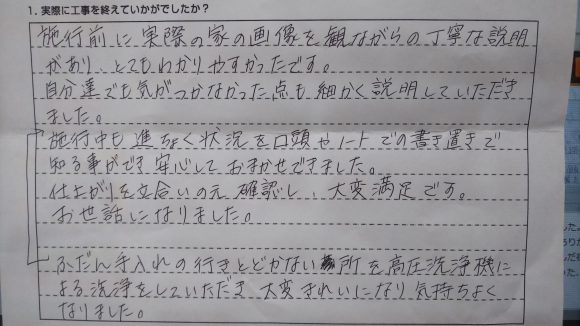 1. 実際に工事を終えていかがでしたか？
施行前に実際の家の画像を観ながらの丁寧な説明
があり、とてもわかりやすかったです。
自分達でも気がつかなかった点も細かく説明していただき
ました。
施行中も進ちょく状況を口頭やノートでの書き置きで
知る事ができ安心しておまかせできました。
仕上がりを立合いの元、確認し、大変満足です。
お世話になりました。
ふだん手入れの行きとどかない所を高圧洗浄機に
よる洗浄をしていただき大変きれいになり気持ちよく
なりました。